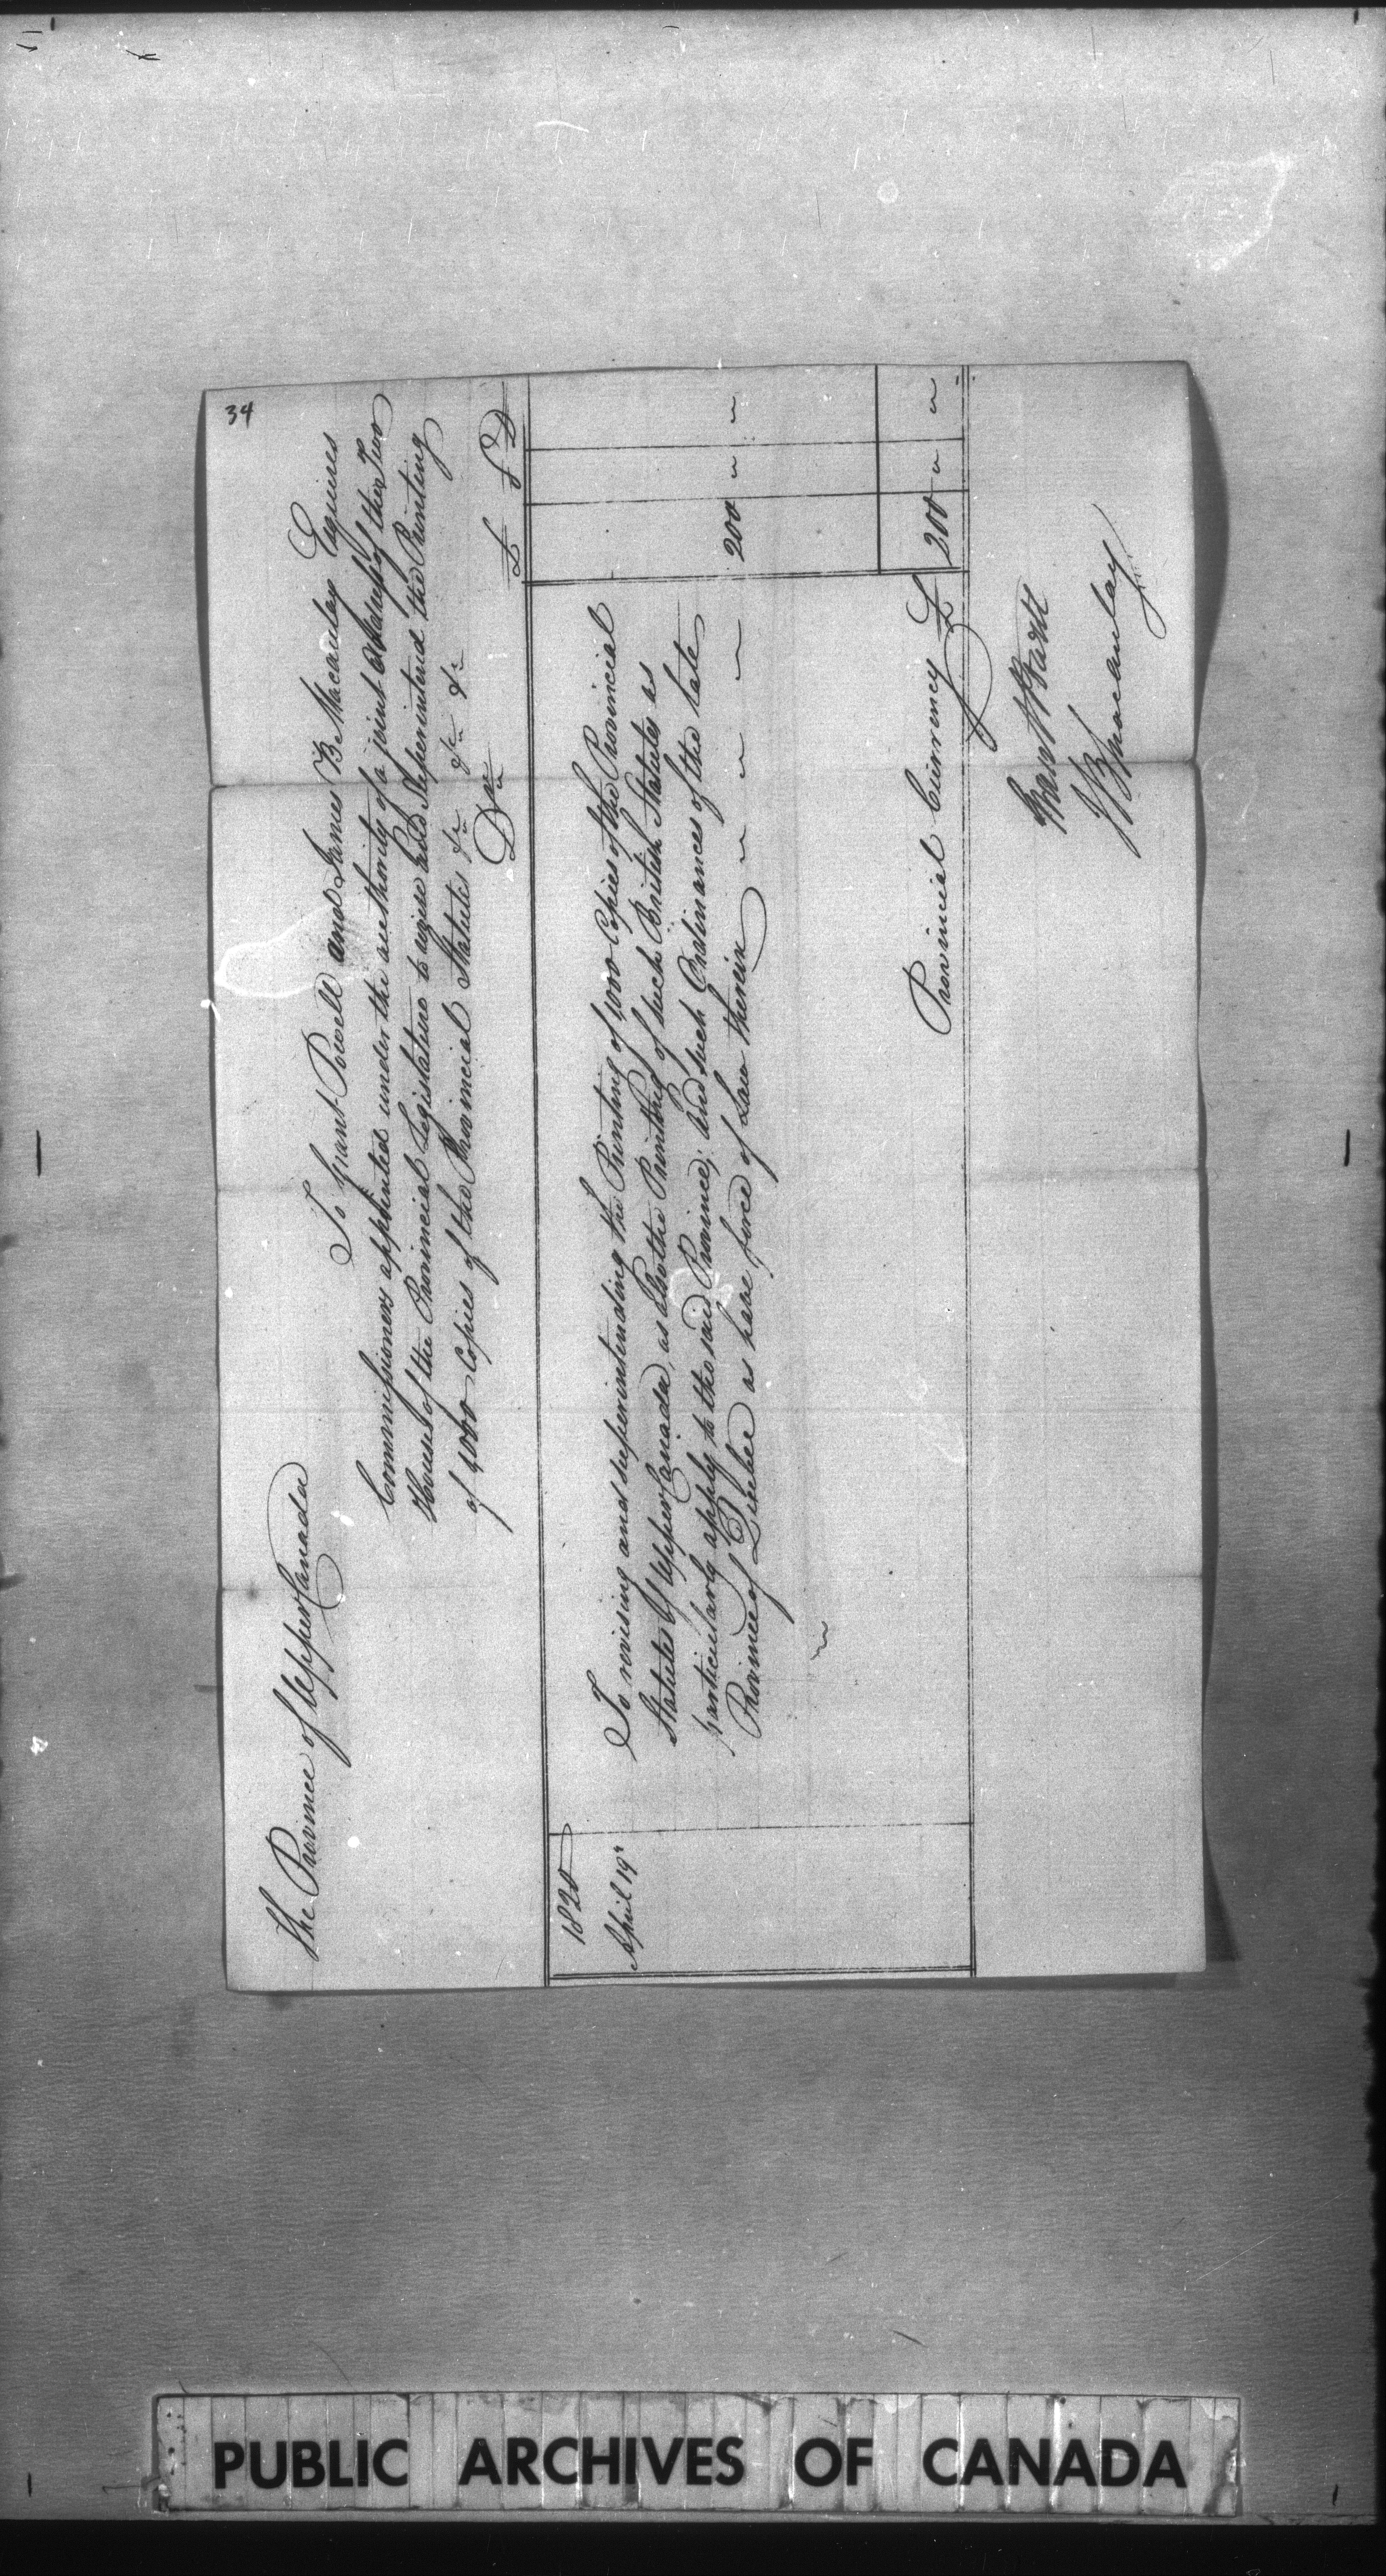 34
The Province of Upper Canada
To Grant Powell and James B. Macaulay Esquires
Commissioners appointed under the authority of a joint Address of the Two
Houses of the Provincial Legislature to revise and Superintend the Printing
of 1000 Copies of the Provincial Statutes &c &c &c
Dr
£ S D
1820
April 19th
To revising and superintending the Printing of 1000 Copies of the Provincial
Statutes of Upper Canada, as also the Printing of such British Statutes as
particularly apply to the said Province; and such Ordinances of the late
Province of Quebec as have force of Law therein 200 " "
Provincial Currency £ 200 " "
Grant Powell
J B Macaulay
PUBLIC ARCHIVES OF CANADA